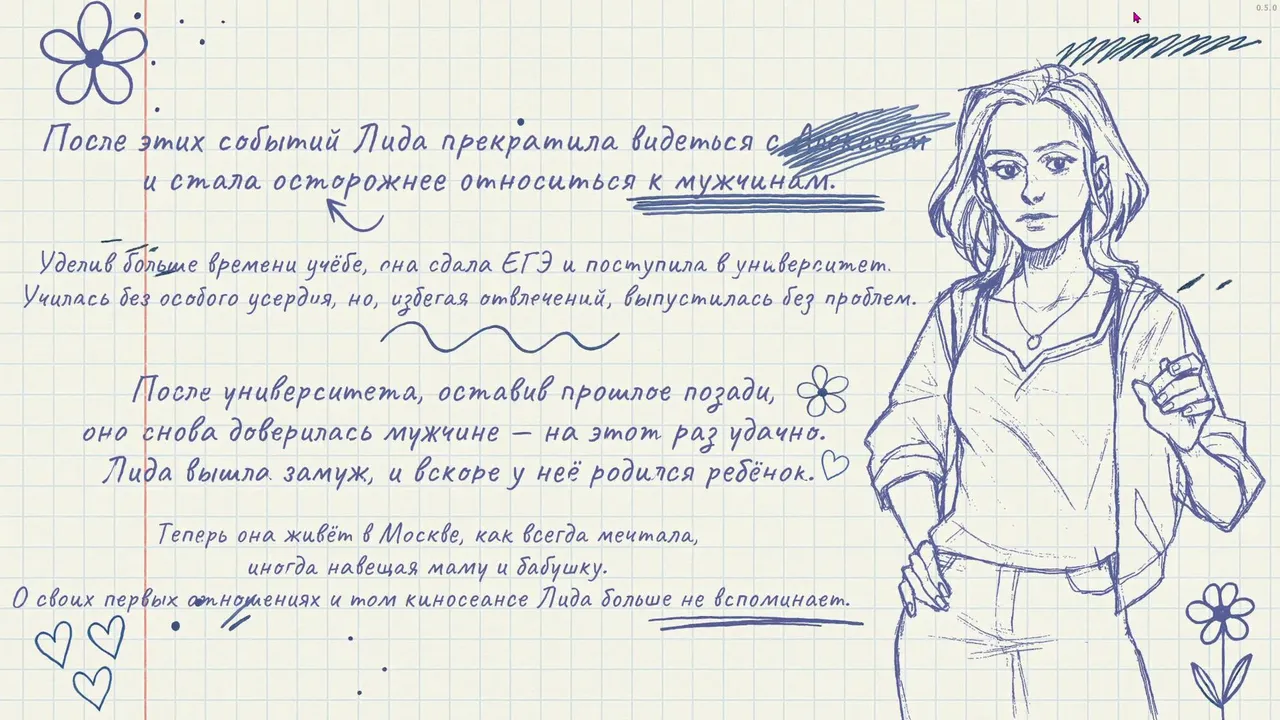 0.5.0
После этих событий Лида прекратила видеться с Алексеем
и стала осторожнее относиться к мужчинам.
Уделив больше времени учёбе, она сдала ЕГЭ и поступила в университет.
Училась без особого усердия, но, избегая отвлечений, выпустилась без проблем.
После университета, оставив прошлое позади,
она снова доверилась мужчине — на этот раз удачно.
Лида вышла замуж, и вскоре у неё родился ребёнок.
Теперь она живёт в Москве, как всегда мечтала,
иногда навещая маму и бабушку.
О своих первых отношениях и том киносеансе Лида больше не вспоминает.